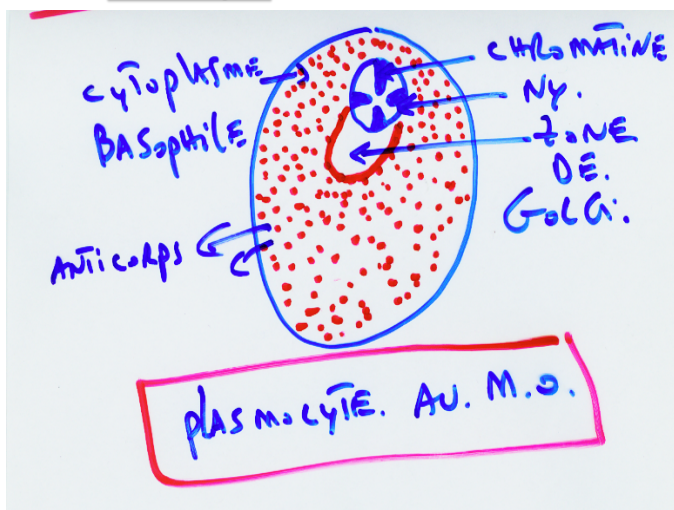 CYTOPLASME
BASOPHILE
ANTICORPS
CHROMATINE
NY.
ZONE
DE.
GOLGI.
PLASMOCYTE. AU. M.O.